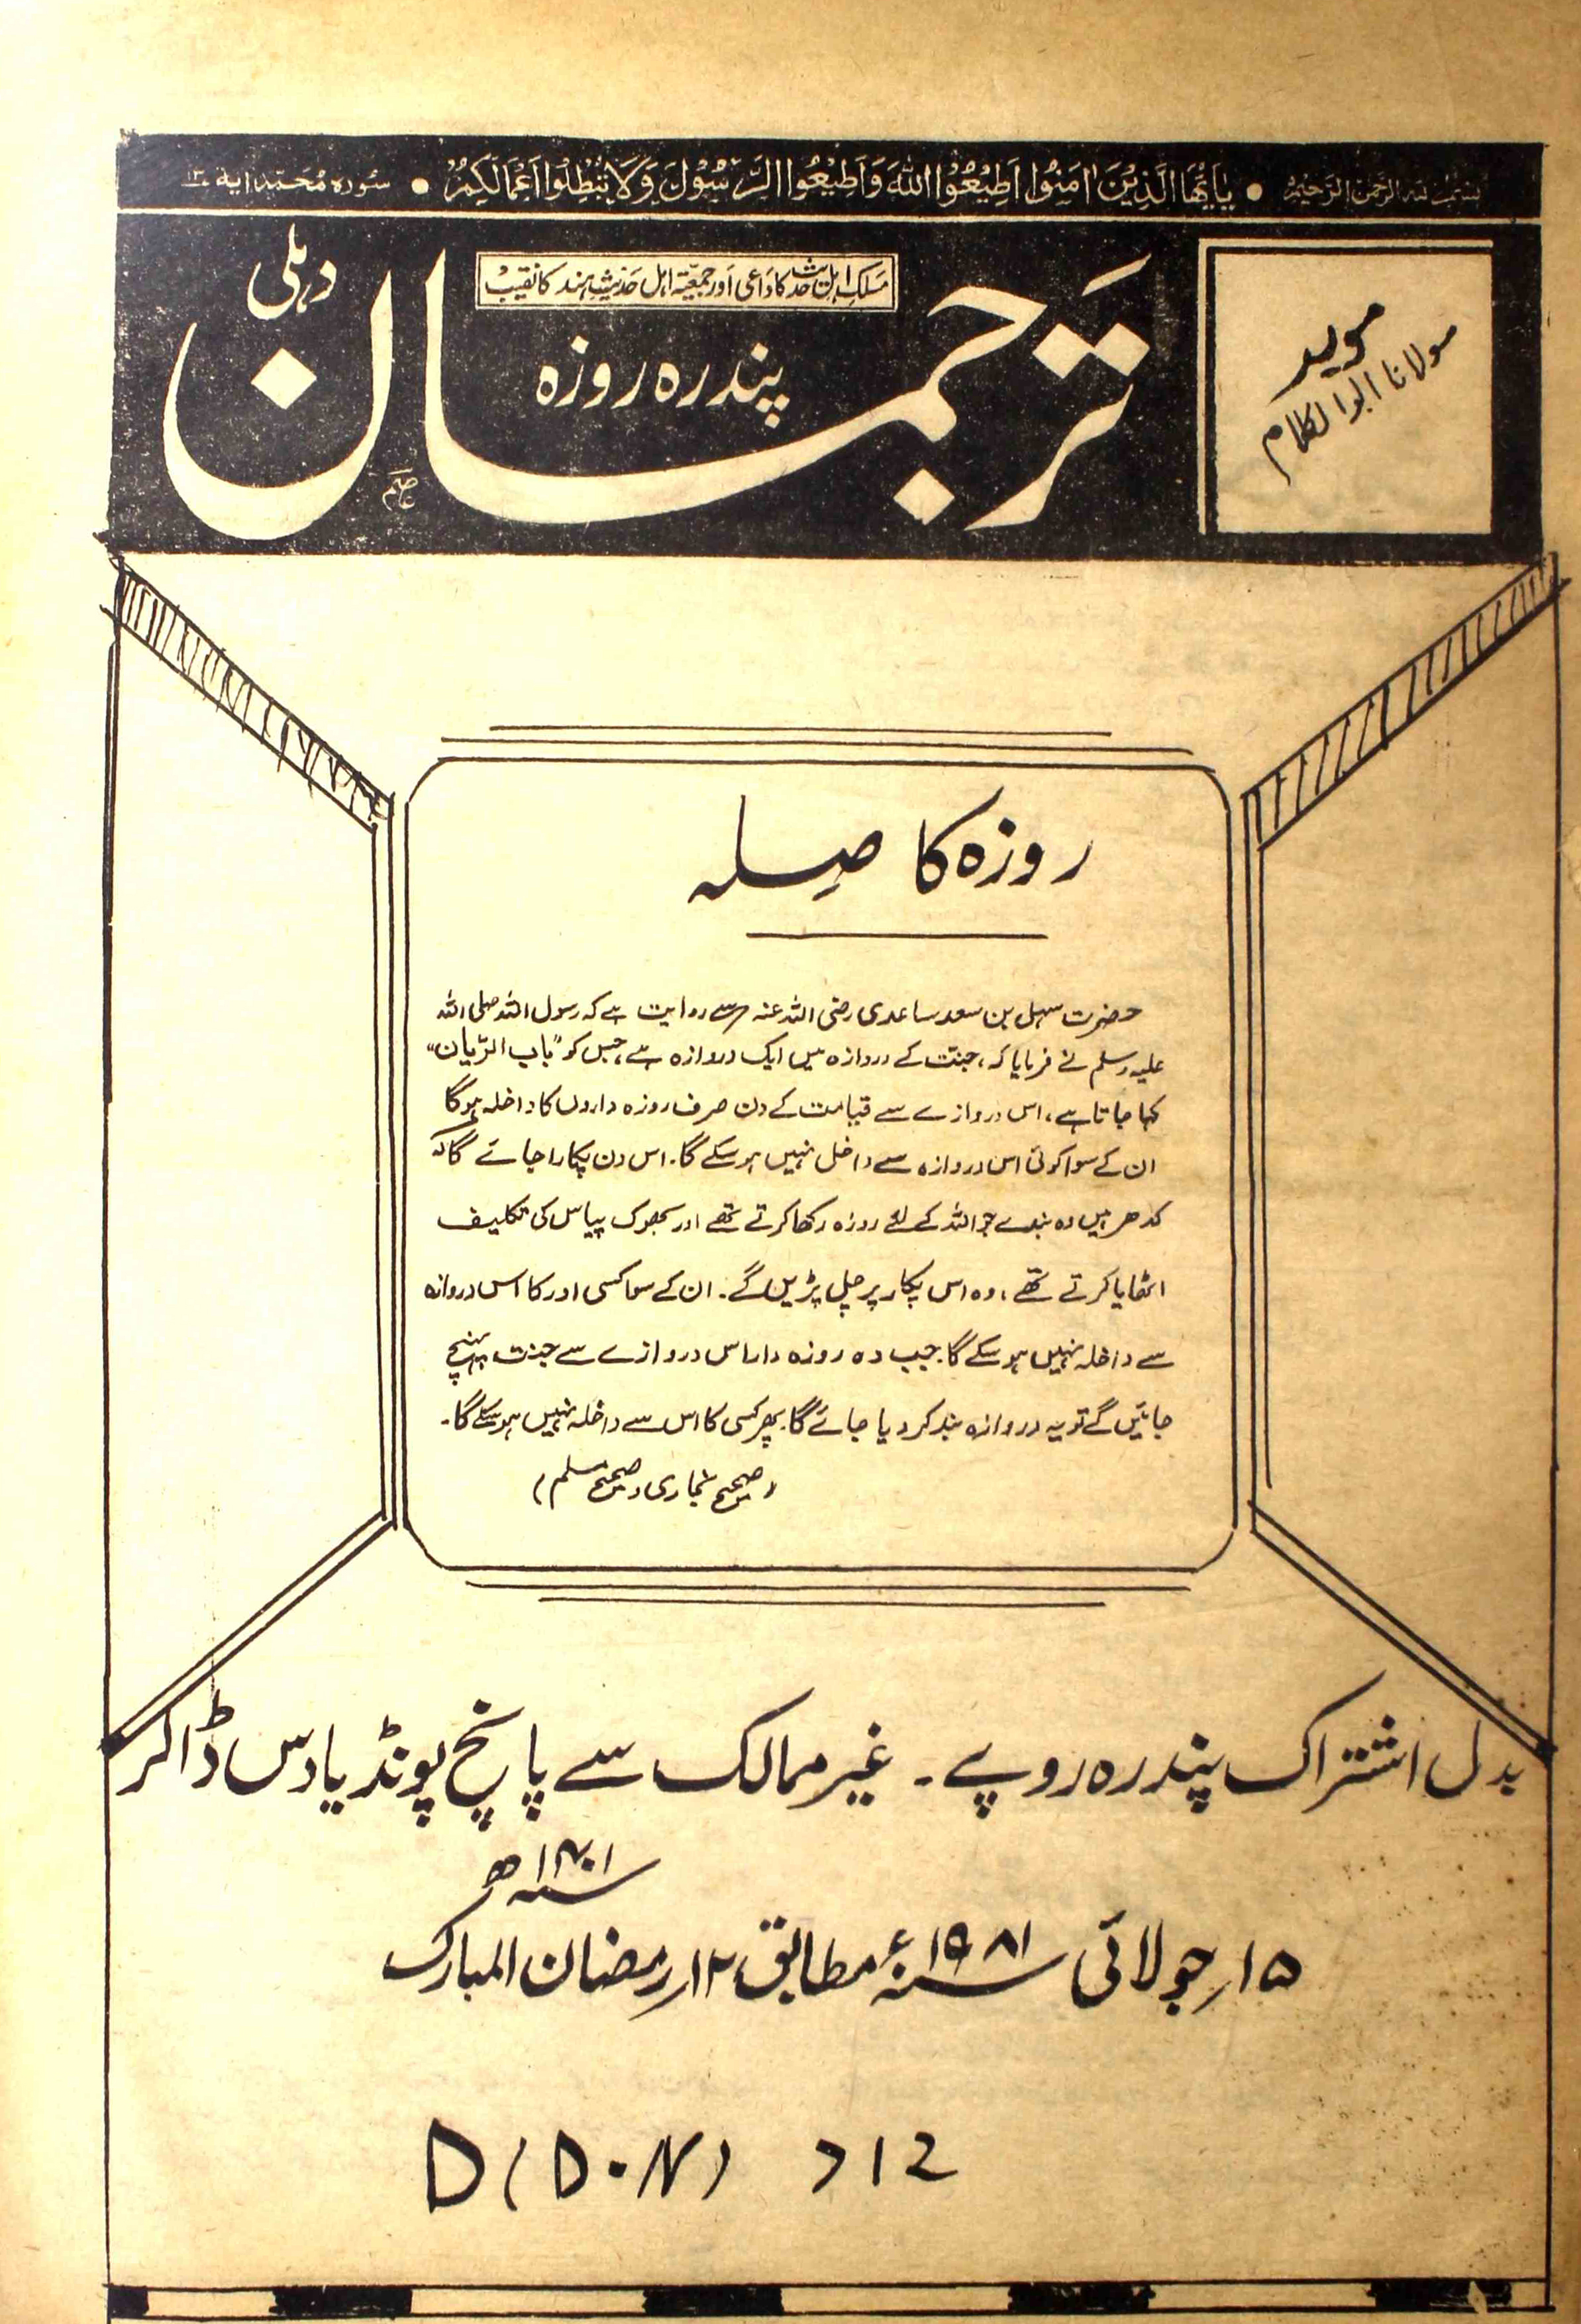 بسم اللہ الرحمن الرحیم • یٰاَیُّهَا الَّذِیْنَ اٰمَنُوْا اَطِیْعُوْا اللّٰهَ وَاَطِیْعُوا الرَّسُوْلَ وَلَا تُبْطِلُوْا اَعْمَالَكُمْ • سورہ محمد اٰیة
مسلک اہل حدیث کا داعی اور جمعیۃ اہل حدیث ہند کا نقیب
ترجمان
پندرہ روزہ
دہلی
مدیر
مولانا ابوالکلام
روزہ کا صِلہ
حضرت سہل بن سعد ساعدی رضی اللہ عنہ سے روایت ہے کہ رسول اللہ صلی اللہ
علیہ وسلم نے فرمایا کہ، جنت کے دروازہ میں ایک دروازہ ہے، جس کو "باب الرّیان"
کہا جاتا ہے، اس دروازے سے قیامت کے دن صرف روزہ داروں کا داخلہ ہوگا
ان کے سوا کوئی اس دروازہ سے داخل نہیں ہو سکے گا. اس دن پکارا جائے گا کہ
کدھر ہیں وہ بندے جو اللہ کے لئے روزہ رکھا کرتے تھے اور بھوک پیاس کی تکلیف
اٹھایا کرتے تھے، وہ اس پکار پر چل پڑیں گے۔ ان کے سوا کسی اور کا اس دروازہ
سے داخلہ نہیں ہو سکے گا. جب وہ روزہ دار اس دروازے سے جنت پہنچ
جائیں گے تو یہ دروازہ بند کر دیا جائے گا. پھر کسی کا اس سے داخلہ نہیں ہو سکے گا۔
(صحیح بخاری، صحیح مسلم)
بدل اشتراک پندرہ روپے ۔ غیر ممالک سے پانچ پونڈ یا دس ڈالر
۱۵؍ جولائی ۱۹۸۱ء مطابق ۱۲؍ رمضان المبارک ۱۴۰۱ھ
D(D.N) 712